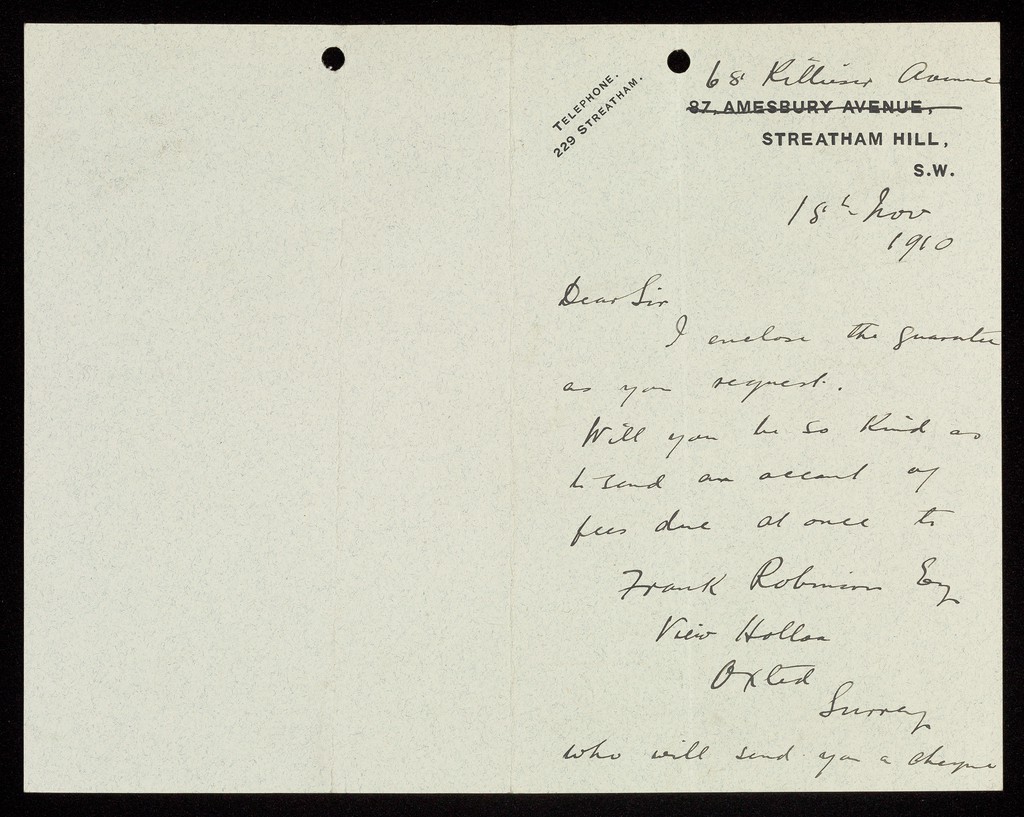 TELEPHONE.
229 STREATHAM.
68 Killieser Avenue
87, AMESBURY AVENUE,
STREATHAM HILL,
S.W.
18th Nov
1910
Dear Sir
I enclose the guarantee
as you request.
Will you be so kind as
to send an account of
fees due at once to
Frank Robinson Esq
View Holloa
Oxted
Surrey
who will send you a cheque